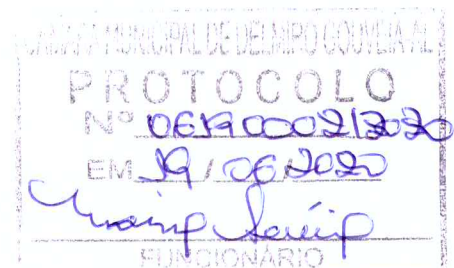 CÂMARA MUNICIPAL DE DELMIRO GOUVEIA AL
PROTOCOLO
Nº 06190002/2020
EM 19 / 06 / 2020
FUNCIONÁRIO